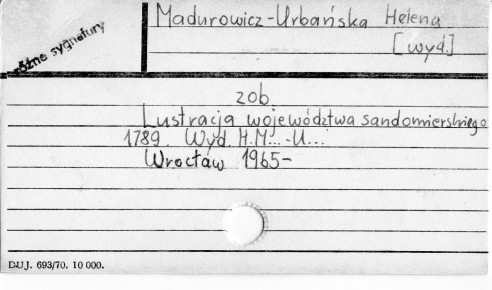 różne sygnatury
Madurowicz-Urbańska Helena
[wyd.]
zob.
Lustracja województwa sandomierskiego
1789. Wyd. H. M... -U...
Wrocław 1965-
DUJ. 693/70. 10 000.